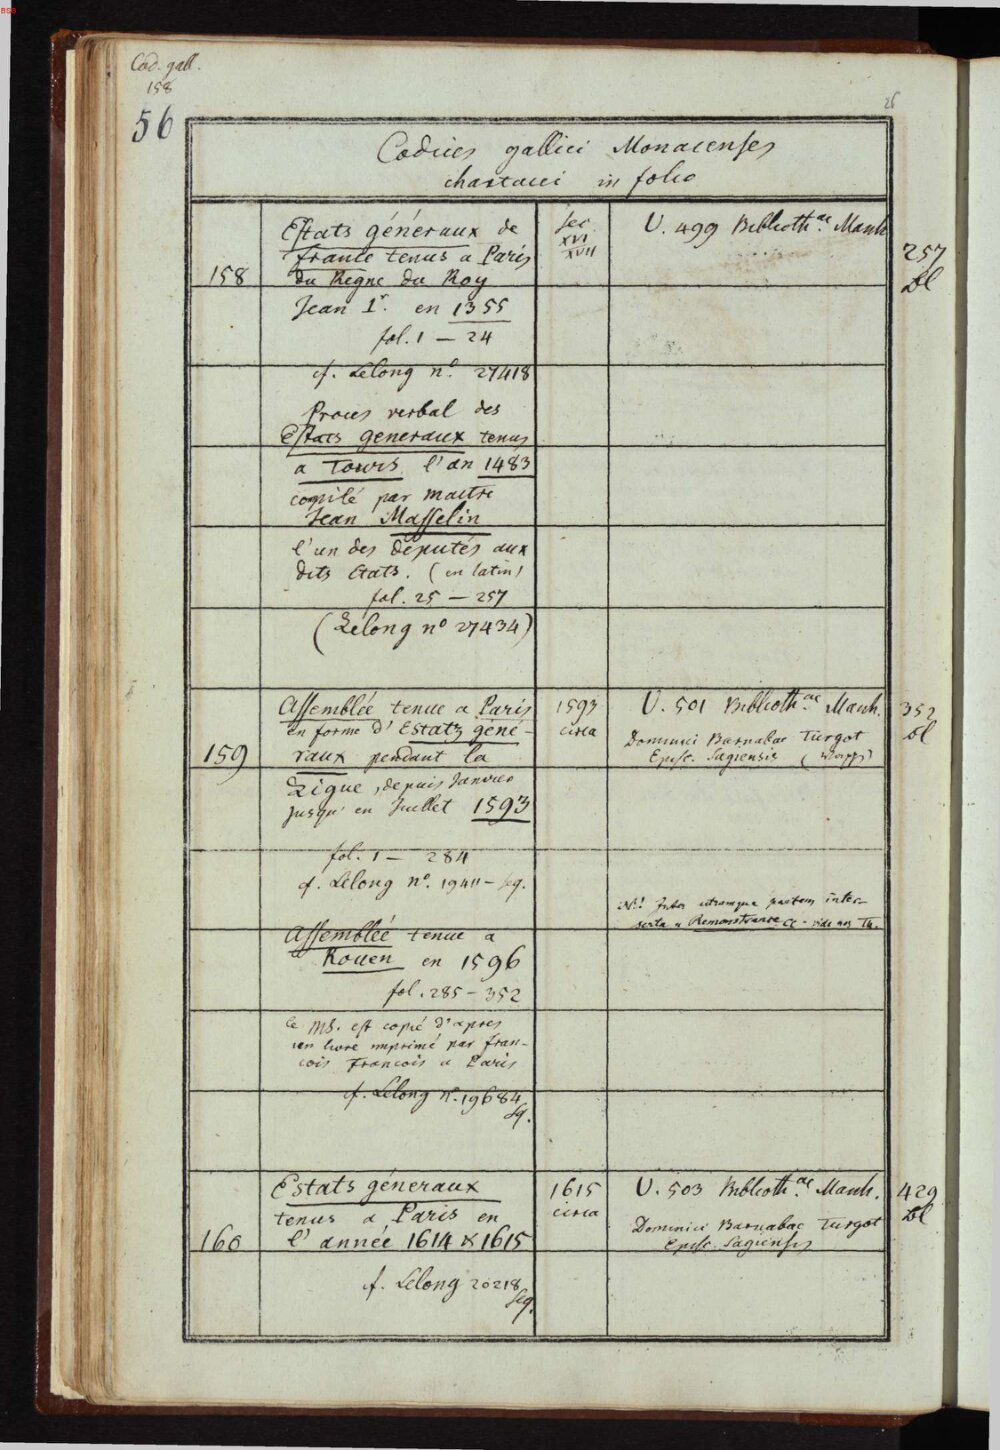 BSB
Cod. gall.
158
56
26
Codices gallici Monacenses
chartacei in folio
158
Estats généraux de
france tenus a Paris
du Regne du Roy
Jean 1r. en 1355
fol. 1 — 24
cf. Lelong no. 27418
Proces verbal des
Estats generaux tenus
a Tours l'an 1483
compilé par maitre
Jean Masselin
l'un des députés aux
dits Etats. (en latin)
fol. 25 — 257
(Lelong no 27434)
sec.
XVI
XVII
U. 499 Biblioth.ae Manh
257
Bl
159
Assemblée tenue a Paris
en forme d'Estatz géné-
raux pendant la
Ligue, depuis Janvier
jusqu'en Juillet 1593
fol. 1 — 284
cf. Lelong no. 19411 – seq.
Assemblée tenue a
Rouen en 1596
fol. 285 – 352
Ce MS. est copié d'apres
un livre imprimé par Fran-
cois Francois a Paris
cf. Lelong no. 19684
sq.
1593
circa
U. 501 Biblioth.ae Manh.
Dominici Barnabae Turgot
Episc. Sagiensis (Wapp)
N.! Inter utramque partem inter-
serta e Remonstrance
352
Bl
160
Estats géneraux
tenus a Paris en
l'année 1614 & 1615
cf. Lelong 20218
seq.
1615
circa
U. 503 Biblioth.ae Manh.
Dominici Barnabae Turgot
Episc. Sagiensis
429
Bl